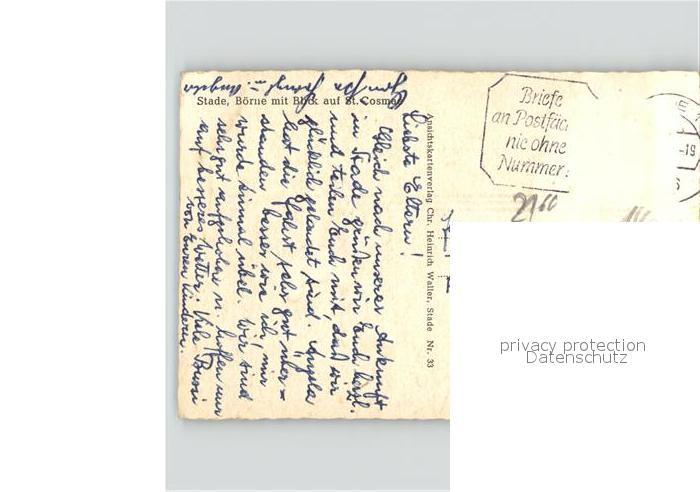 Stade, Börne mit Blick auf St. Cosmae
Liebste Eltern!
Gleich nach unserer Ankunft
in Stade grüßen wir Euch herzl.
und teilen Euch mit, daß wir
glücklich gelandet sind. Angela
hat die Fahrt sehr gut über=
standen besser wie ich, mir
wurde einmal übel. Wir sind
sehr gut aufgehoben u. hoffen nur
auf besseres Wetter. Viele Bussi
von Euren Kindern.
u. Angela
Ansichtskartenverlag Chr. Heinrich Waller, Stade Nr. 33
Briefe
an Postfäch
nie ohne
Nummer!
-19
privacy protection
Datenschutz